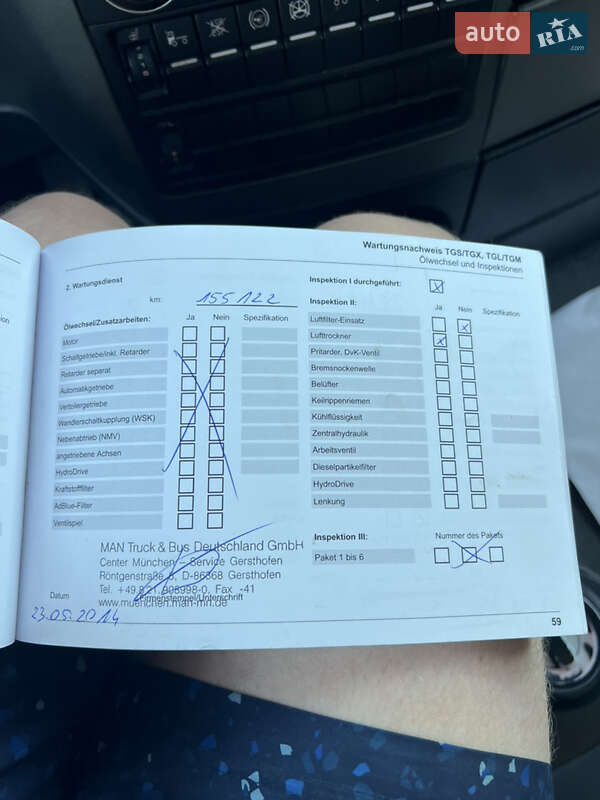 auto RIA .com
Wartungsnachweis TGS/TGX, TGL/TGM
Ölwechsel und Inspektionen
2. Wartungsdienst
km: 155 122
Ölwechsel/Zusatzarbeiten: Ja Nein Spezifikation
Motor
Schaltgetriebe/inkl. Retarder
Retarder separat
Automatikgetriebe
Verteilergetriebe
Wandlerschaltkupplung (WSK)
Nebenabtrieb (NMV)
angetriebene Achsen
HydroDrive
Kraftstofffilter
AdBlue-Filter
Ventilspiel
MAN Truck & Bus Deutschland GmbH
Center München – Service Gersthofen
Röntgenstraße 3, D-86368 Gersthofen
Fax -41
www.muenchen.man-mn.de
Datum Firmenstempel/Unterschrift
23.05.2014
Inspektion I durchgeführt: X
Inspektion II: Ja Nein Spezifikation
Luftfilter-Einsatz X
Lufttrockner X
Pritarder, DvK-Ventil
Bremsnockenwelle
Belüfter
Keilrippenriemen
Kühlflüssigkeit
Zentralhydraulik
Arbeitsventil
Dieselpartikelfilter
HydroDrive
Lenkung
Inspektion III: Nummer des Pakets
Paket 1 bis 6
59